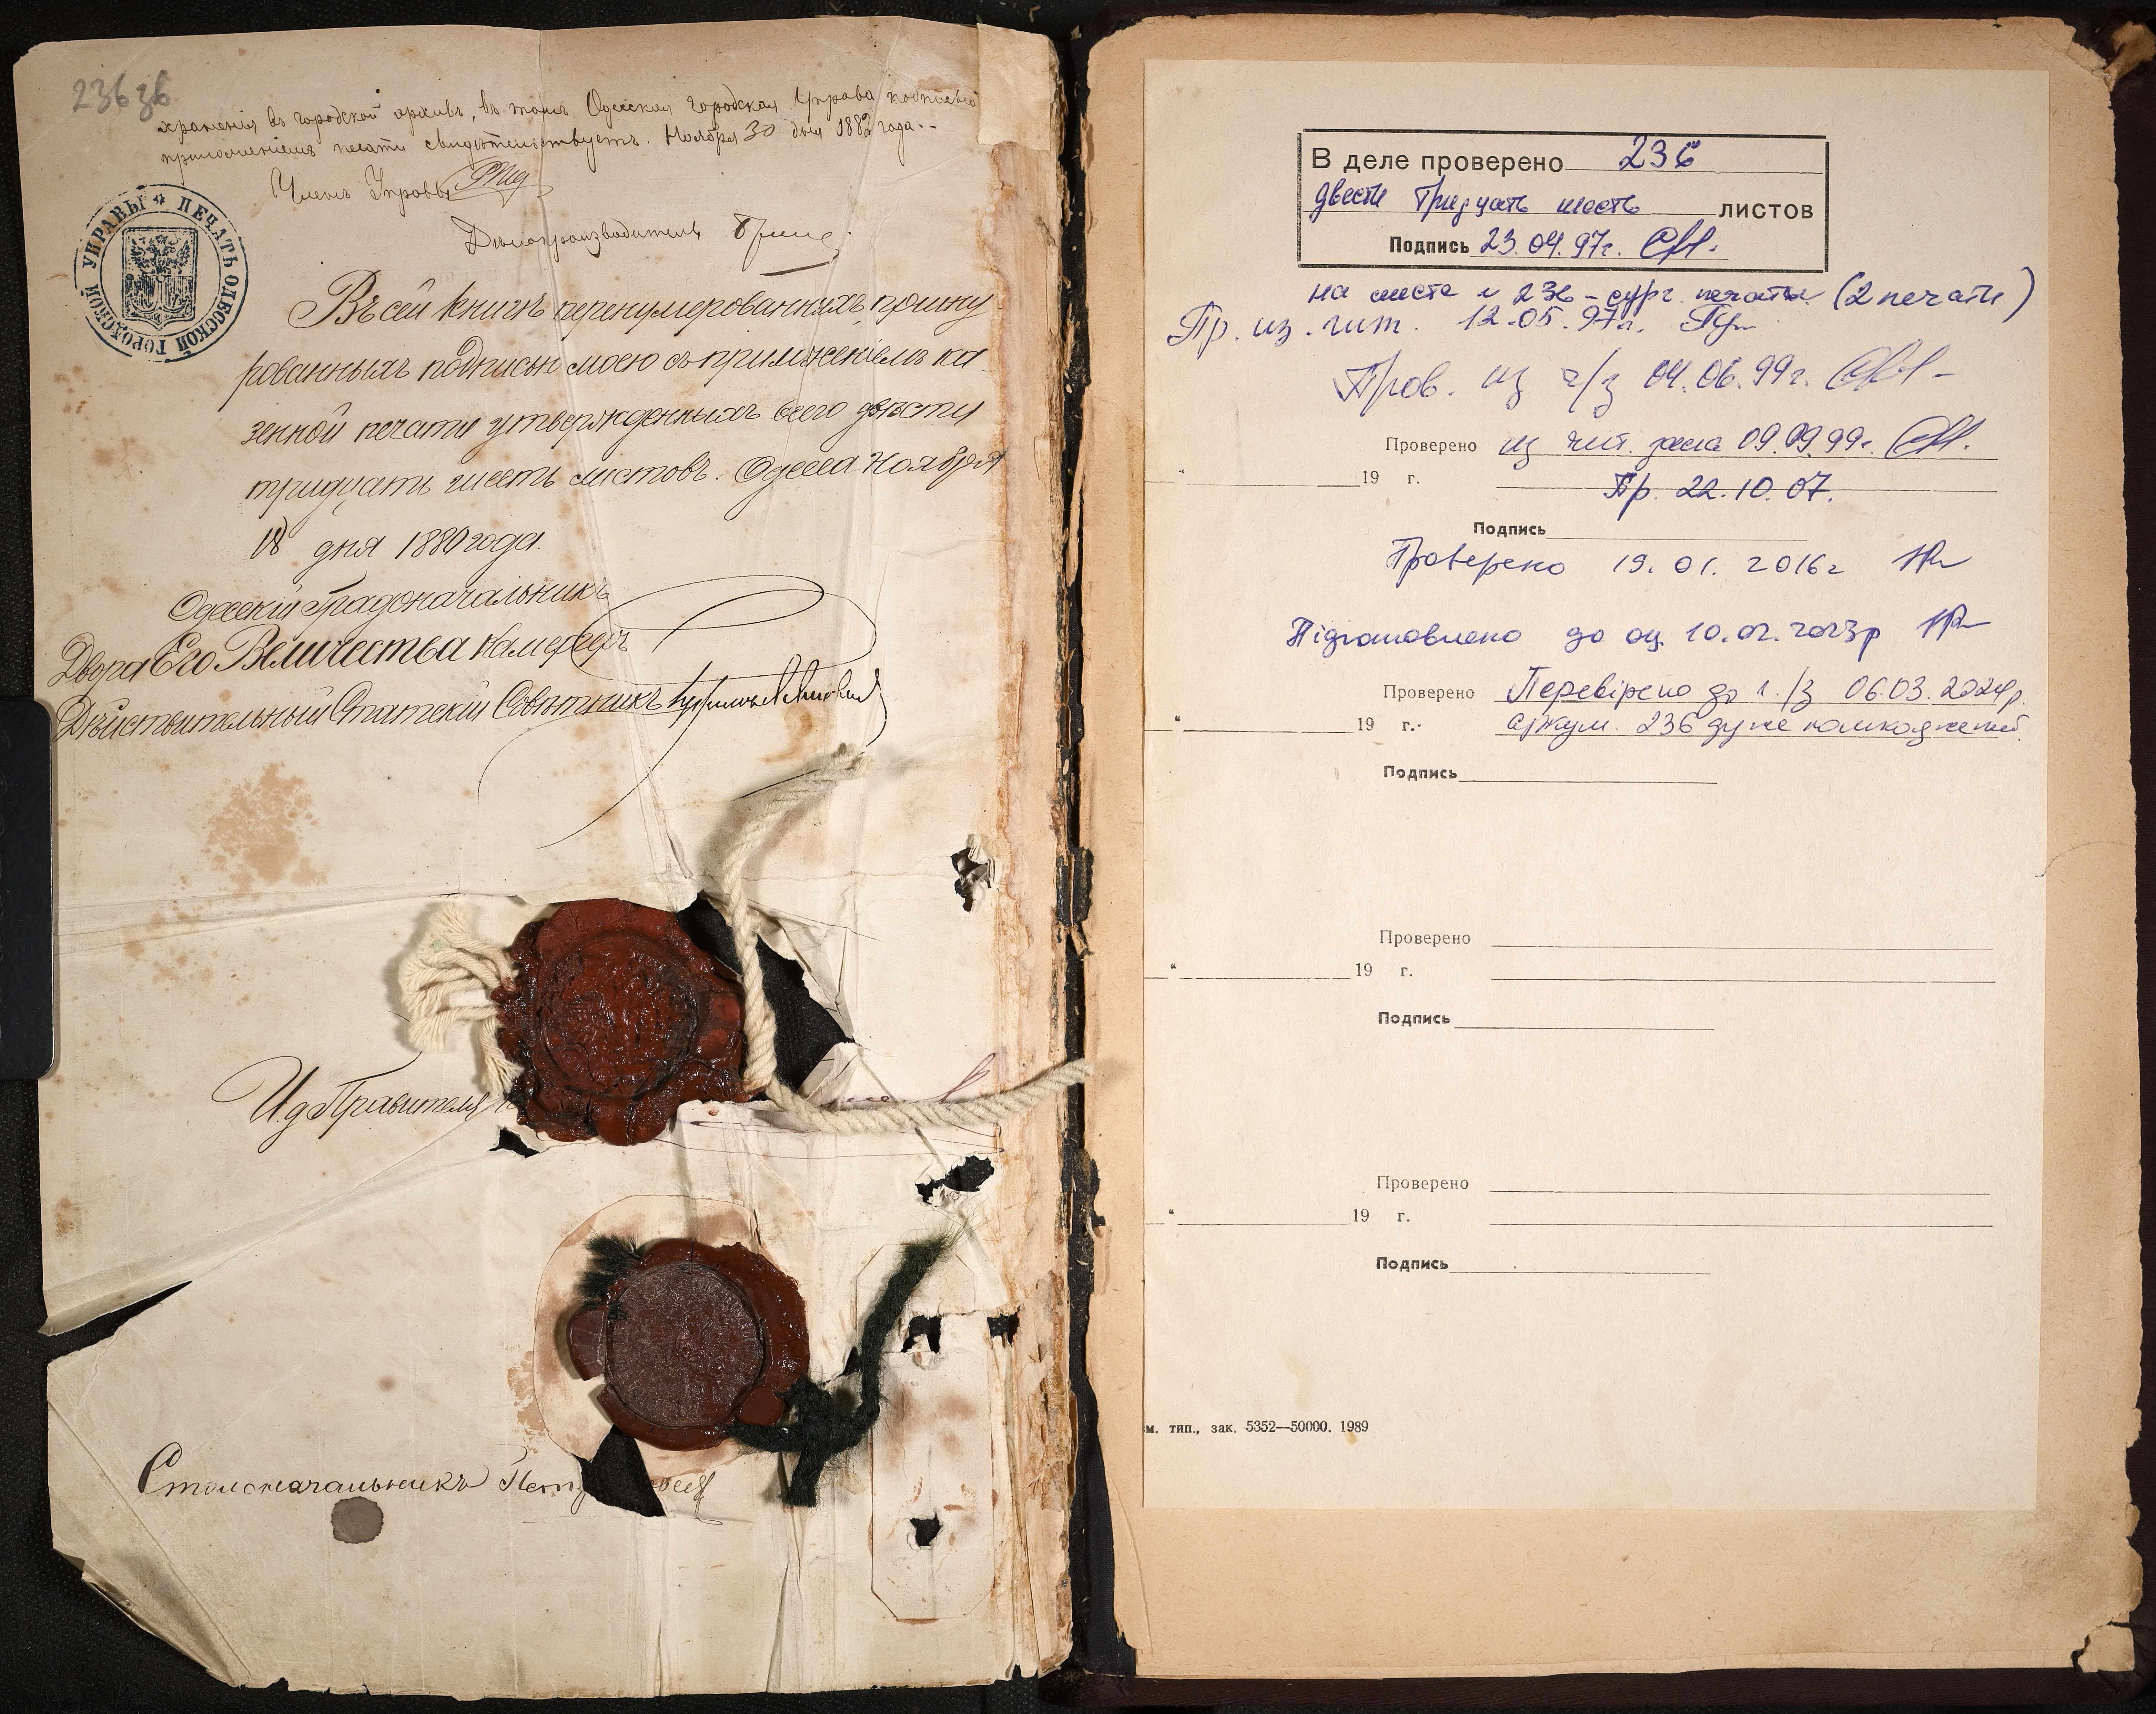 236 зв
храненія въ городской архивъ, въ томъ Одесская Городская Управа подписью
приложеніемъ печати свидѣтельствуетъ. Ноября 30 дня 1882 года.
Членъ Управы
Дѣлопроизводитель
ПЕЧАТЬ ОДЕССКОЙ ГОРОДСКОЙ УПРАВЫ
Въ сей книгѣ перенумерованныхъ, прошну
рованныхъ подписью моею съ приложеніемъ ка-
зенной печати утвержденныхъ всего двѣсти
тридцать шесть листовъ. Одесса Ноября
18 дня 1880 года.
Одесскій Градоначальникъ
Двора Его Величества Камергеръ
Дѣйствительный Статскій Совѣтникъ
И д Правителя
Столоначальникъ
В деле проверено 236
двести тридцать шесть листов
Подпись 23.04.97г.
на листе № 236 – сург. печати (2 печати)
Пр. из. чит. 12.05.97г.
Пров. из ч/з 04.06.99г.
Проверено из чит. зала 09.09.99г.
" 19 г.
Пр. 22.10.07.
Подпись
Проверено 19.01.2016г
Підготовлено до оц. 10.02.2023р
Проверено Перевірено до ч./з 06.03.2024р.
" 19 г. аркуш. 236 дуже пошкоджений
Подпись
Проверено
" 19 г.
Подпись
Проверено
" 19 г.
Подпись
м. тип., зак. 5352—50000. 1989